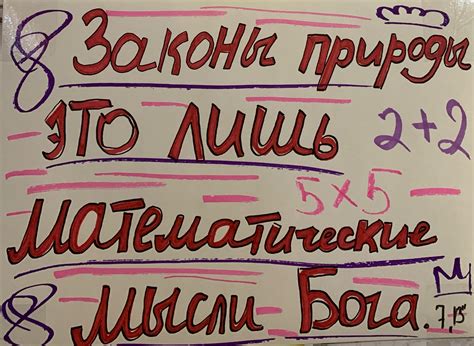 8 Законы природы
это лишь 2+2
5x5
Математические
8 мысли Бога. 7,15